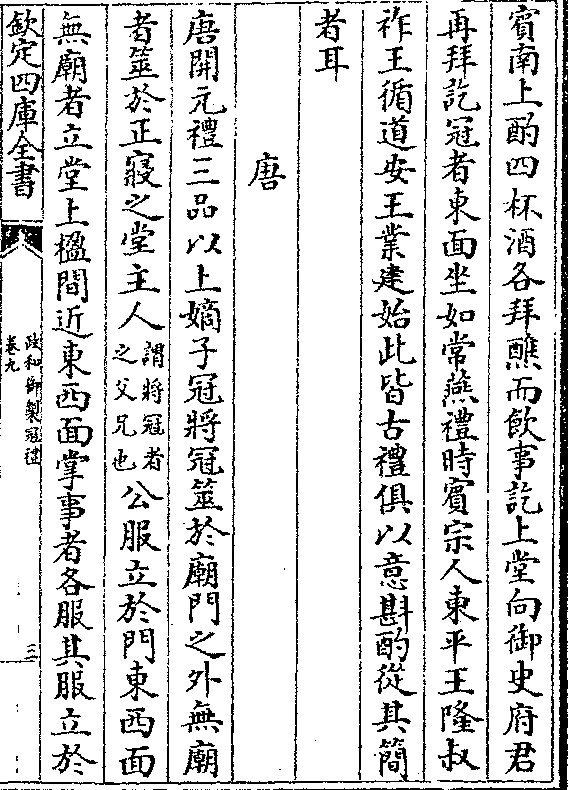 賓南上酌四杯酒各拜醮而飲事訖上堂向御史府君
再拜訖冠者東面坐如常燕禮時賓宗人東平王隆叔
祚王循道安王業建始此皆古禮俱以意斟酌從其簡
者耳
唐
唐開元禮三品以上嫡子冠將冠筮於廟門之外無廟
者筮於正寢之堂主人謂將冠者之父兄也公服立於門東西面
無廟者立堂上楹間近東西面掌事者各服其服立於
欽定四庫全書
政和御製冠禮
卷九
三